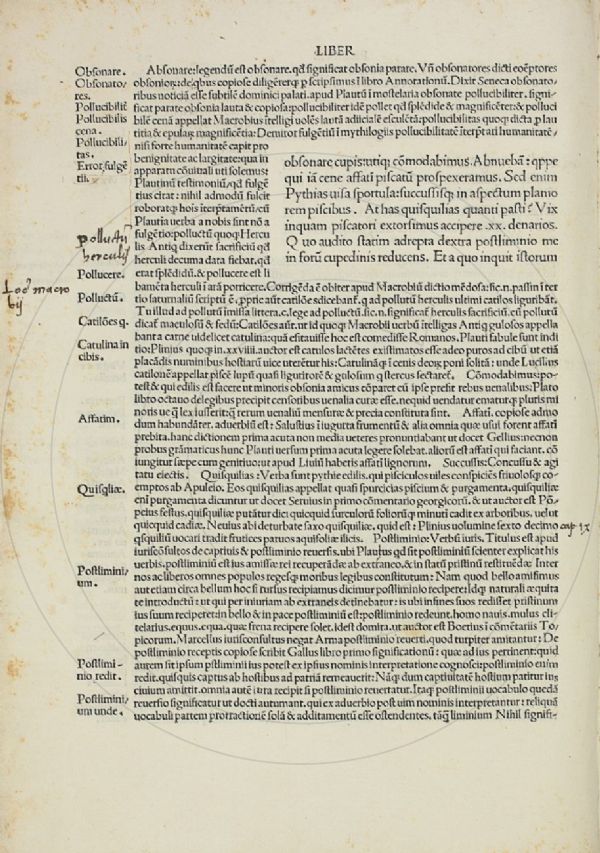 LIBER
Obsonare.
Obsonato/
res.
Pollucibilis
cena.
Pollucibili/
tas.
Error fulgē
tii.
polluctū
herculis
Pollucere.
Loc⁹ macro
bij
Polluctū.
Catilōes q.
Catulina in
cibis.
Affatim.
Quisq̄liæ.
Postlimini/
um.
Postlimi/
nio redit.
Postlimini/
um unde.
Absonare: legendū est obsonare. qd significat obsonia parare. Vn̄ obsonatores dicti eo&emptores
obsoniorū: de qbus copiose diligēterq; p scripsimus ī libro Annotationū. Dixit Seneca obsonato/
ribus noticiā esse subtilē dominici palati. apud Plautū ī mostelaria obsonate pollucibiliter. signi/
ficat parate obsonia lauta & copiosa: pollucibiliter idē pollet qd splēdide & magnificēter: & polluci
bilē cenā appellat Macrobius
titia & epularū magnificētia: Demiror fulgētiū ī mythologiis pollucibilitatē īterp̄tari humanitatē/
nisi forte humanitatē capit pro
benignitate ac largitate: qua in
apparatu cōuiuali uti solemus:
Plautinū testimoniū, qd fulgē
tius citat: nihil admodū fulcit
roboratq; hois īterp̄tamētū/cū
Plautia uerba a nobis sint nō a
fulgētio: polluctū quoq; Hercu
lis Antiq dixerūt sacrificiū qd
herculi decuma data fiebat. qd
erat splēdidū. & pollucere est li
obsonare cupistutiq; cōmodabimus. Abnuebā: qppe
qui iā cene affati piscatū prospexeramus. Sed enim
Pythias uisa sportula: succussisq; in aspectum planio
rem piscibus. At has quisquilias quanti pasti? Vix
inquam piscatori extorsimus accipere .xx. denarios.
Q uo audito statim adrepta dextra postliminio me
in forū cupedinis reducens. Et a quo inquit istorum
bamēta herculi ī arā porricere. Corrigēda ē obiter apud Macrobiū dictio mēdosa: sic.n. passī ī ter
tio saturnaliū scriptū ē
Tu illud ad pollutū
dicat maculosū & fedū:
bant a carne uidelicet catulina: qua esitauisse hoc est comedisse Romanos. Plauti fabulę sunt indi
tio: Plinius quoq; in.xxviii. auctor est catulos lactētes existimatos esse adeo puros ad cibū ut etiā
placādis numinibus hostiarū uice uterētur his: Catulināq; ī cenis deoꝝ poni solitā: unde Lucilius
catilonē appellat piscē lupū quasi liguritorē & gulosum q stercus sectaret. Cōmodabimus: po/
test & qui edilis est facere ut minoris obsonia amicus cōparet cū ipse prefit rebus uenalibus: Plato
libro octauo delegibus precipit censoribus uenalia curæ esse. nequid uendatur ematurq; pluris mi
noris ue q̄ lex iusserit: q̄ rerum uenaliū mensuræ & precia constituta sint. Affati. copiose admo
dum habundāter. aduerbiū est: Salustius ī iugurta frumentū & alia omnia quæ usui forent affati
prebita. hanc dictionem prima acuta non media ueteres pronuntiabant ut docet Gellius: necnon
probus grāmaticus hunc Plauti uersum prima acuta legere solebat. aliorū est affati qui faciant. cō
iungitur sæpe cum genitiuo: ut apud Liuiū haberis affatī lignorum. Succussis: Concussu & agi
tatu eiectis. Quisquilias: Verba sunt pythie edilis. qui pisciculos uiles conspiciēs friuolosq; co/
emptos ab Apuleio. Eos quisquilias appellat quasi spurcicias pisciū & purgamenta. quisquiliæ
eni purgamenta dicuntur ut docet Seruius in primo cōmentario georgicorū. & ut auctor est Pō
peius festus. quisquiliæ putātur dici: quicquid surculorū foliorūq; minuti cadit ex arboribus. uelut
quicquid cadiæ. Neuius abi deturbate saxo quisquiliæ. quid est: Plinius uolumine sexto decimo
cap IX
qsquiliū uocari tradit frutices paruos aquifoliæ ilicis. Postliminio: Verbū iuris. Titulus est apud
iuriscōsultos de captiuis & postliminio reuersis. ubi Plautus qd sit postliminiū scienter explicat his
uerbis. postliminiū est ius amissæ rei recuperādæ ab extraneo. & in statū pristinū restituēdæ Inter
nos ac liberos omnes populos regesq; moribus legibus constitutum: Nam quod bello amisimus
aut etiam circa bellum hoc si rursus recipiamus dicimur postliminio recipere: Idq; naturali æquita
te introductū: ut qui per iniuriam ab extraneis detinebatur: is ubi in fines suos redisset pristinum
ius suum reciperet. in bello & in pace postliminiū est: postliminio redeunt. homo nauis. mulus cli
telarius. equus. equa. quæ frena recipere solet. idest domita. ut auctor est Boetius ī cōmētariis To
picorum. Marcellus iurisconsultus negat Arma postliminio reuerti. quod turpiter amitantur: De
postliminio receptis copiose scribit Gallus libro primo significationū: quæ ad ius pertinent: quid
autem sit ipsum pstliminii ius potest ex ipsius nominis interpretatione cognosci: postliminio enim
redit. quisquis captus ab hostibus ad patriā remeauerit: Nāq; dum captiuitatē hostium patitur ius
ciuium amittit. omnia autē iura recipit si postliminio reuertatur. Itaq; postliminii uocabulo quædā
reuersio significatur ut docti autumant. qui ex aduerbio post uim nominis interpretantur: reliquā
uocabuli partem protractionē solā & additamentū esse ostendentes. tāq̄ liminium Nihil signifi/